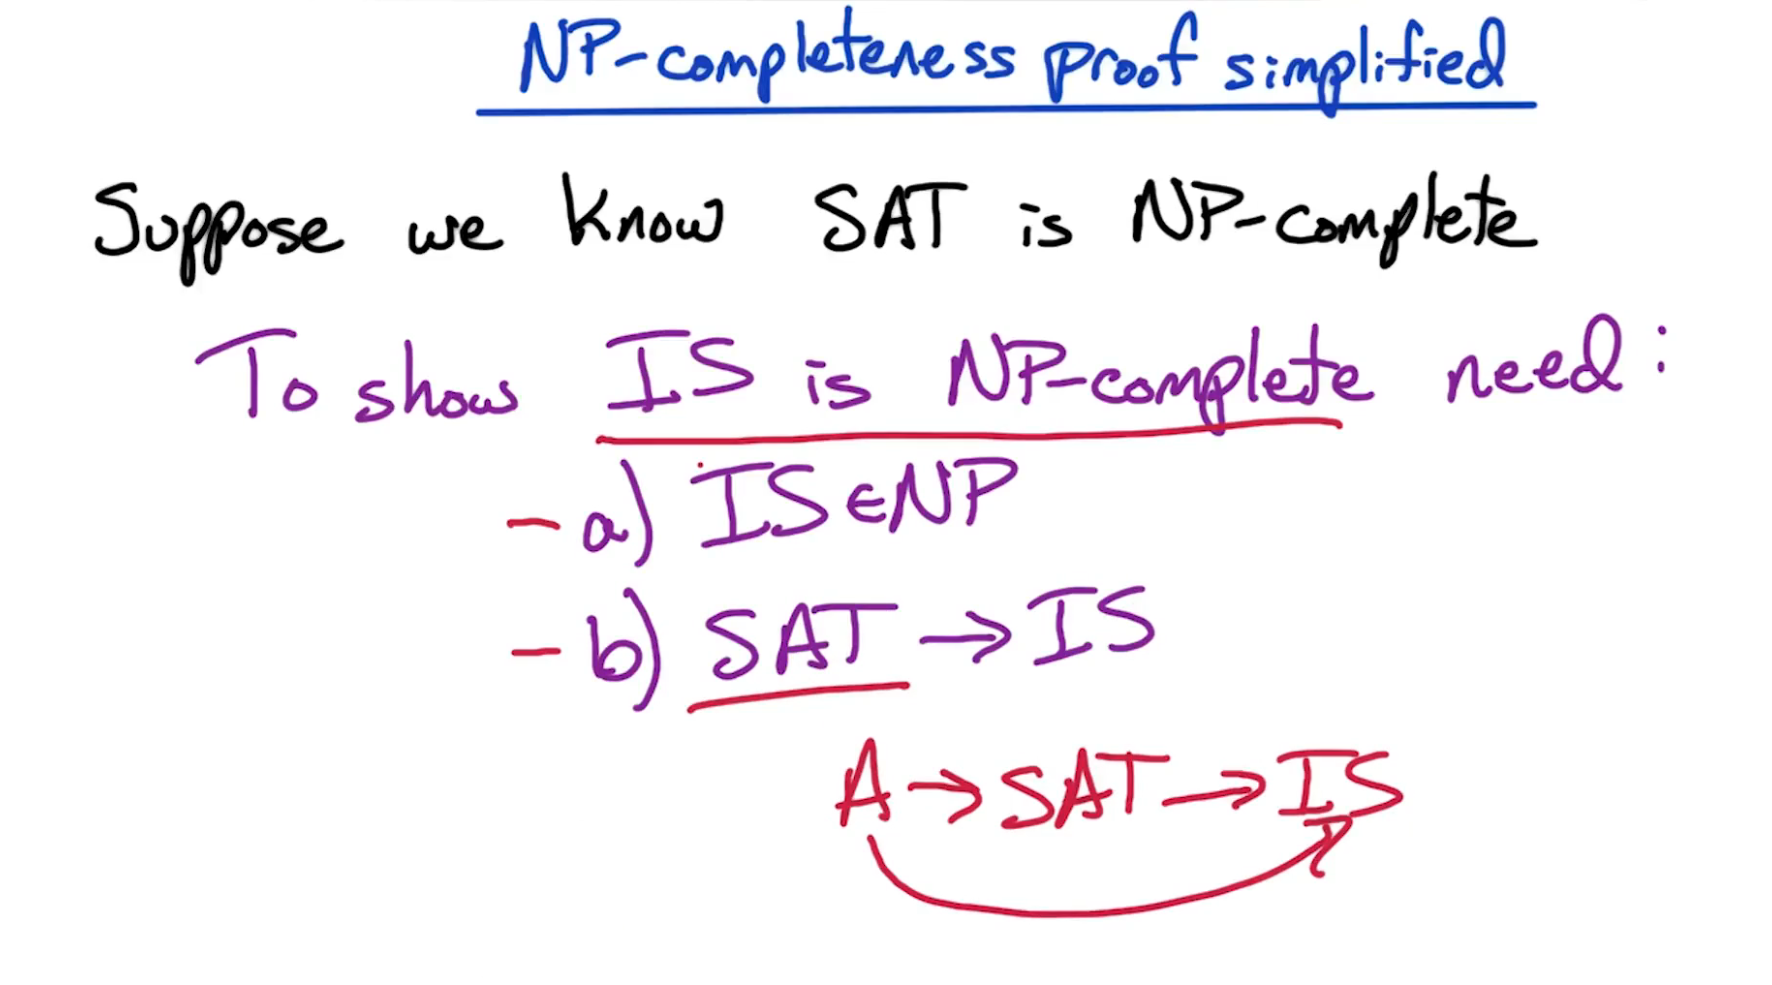 NP-completeness proof simplified
Suppose we know SAT is NP-complete
To show IS is NP-complete need:
- a) IS ∈ NP
- b) SAT → IS
A → SAT → IS